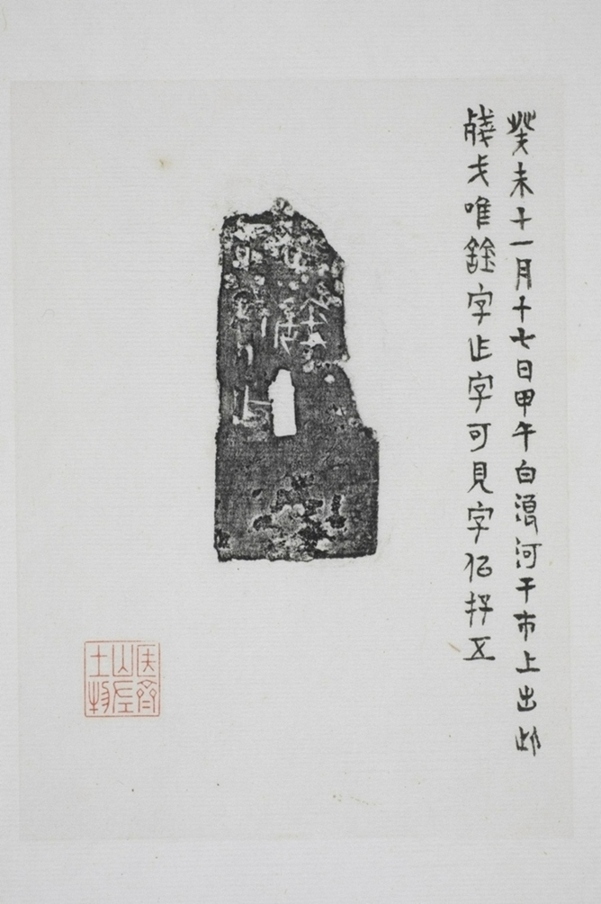 癸未十一月十七日甲午白浪河干市上出此
殘戈唯字止字可見字五
齊
山左
土物